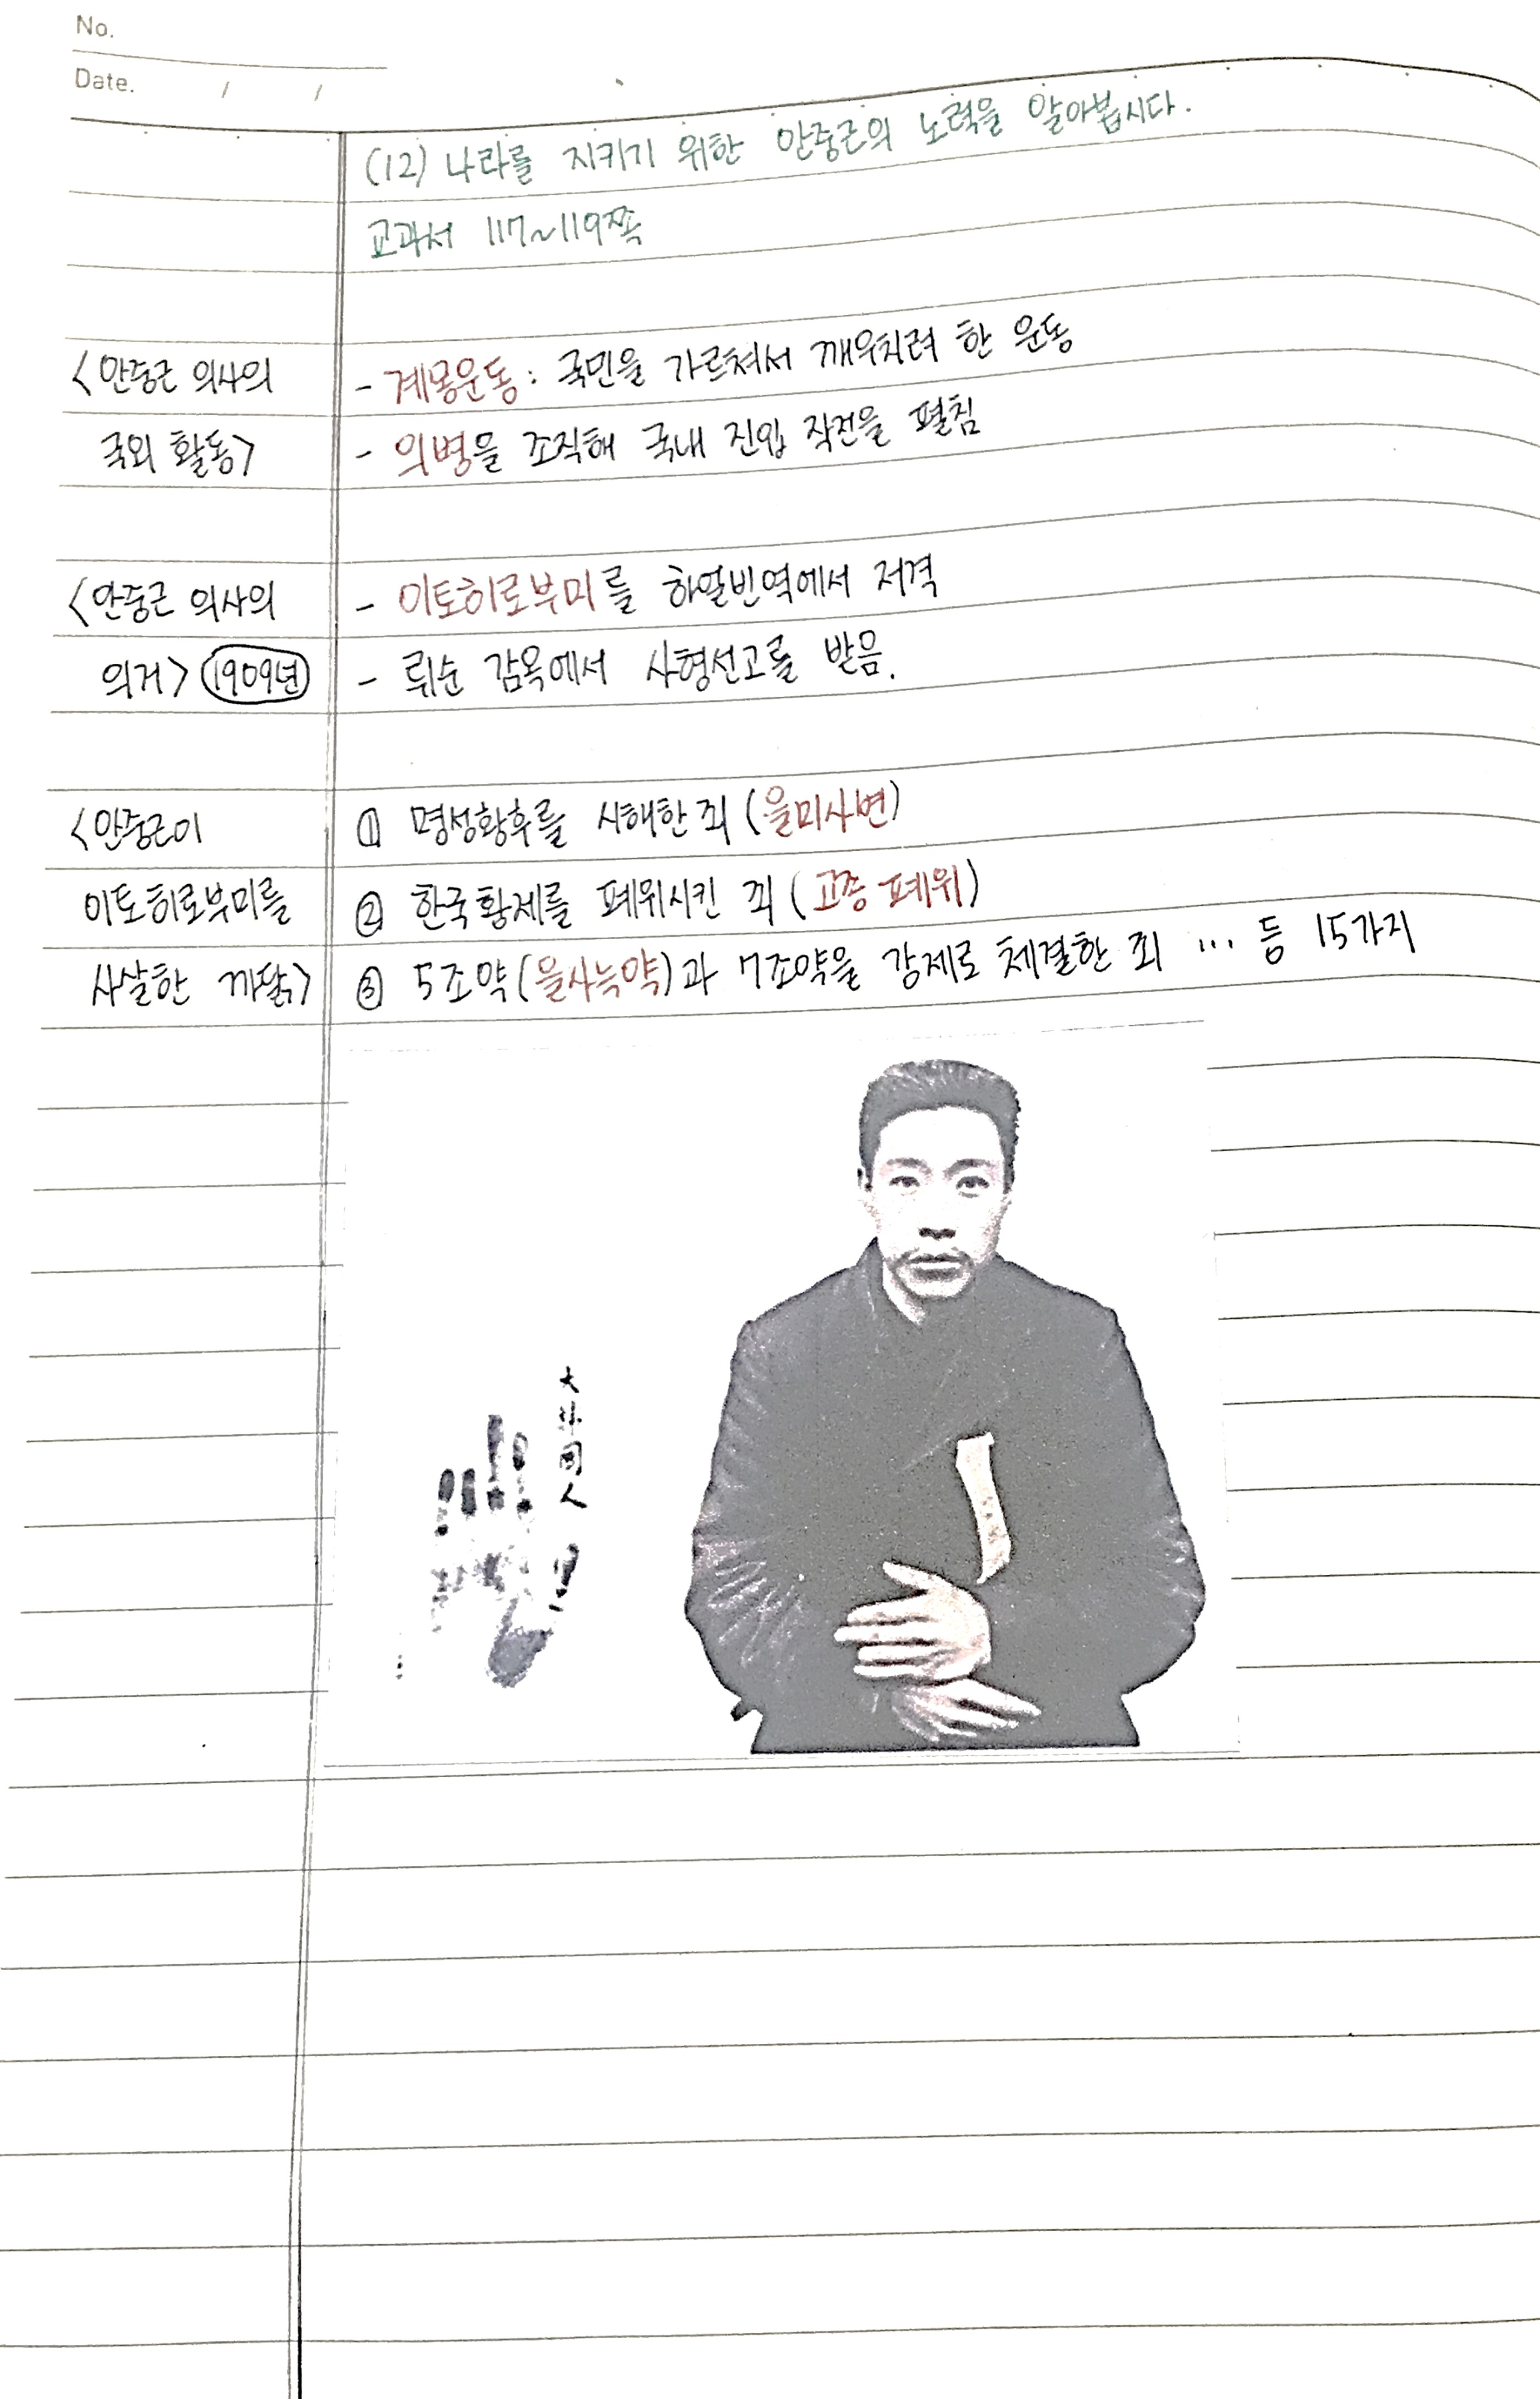 No.
Date. / /
(12) 나라를 지키기 위한 안중근의 노력을 알아봅시다.
교과서 117~119쪽
<안중근 의사의 - 계몽운동 : 국민을 가르쳐서 깨우치려 한 운동
국외 활동> - 의병을 조직해 국내 진입 작전을 펼침
<안중근 의사의 - 이토히로부미를 하얼빈역에서 저격
의거> 1909년 - 뤼순 감옥에서 사형선고를 받음.
<안중근이 ① 명성황후를 시해한 죄 (을미사변)
이토 히로부미를 ② 한국황제를 폐위시킨 죄 (고종 폐위)
사살한 까닭> ③ 5조약(을사늑약)과 7조약을 강제로 체결한 죄 … 등 15가지
大韓國人